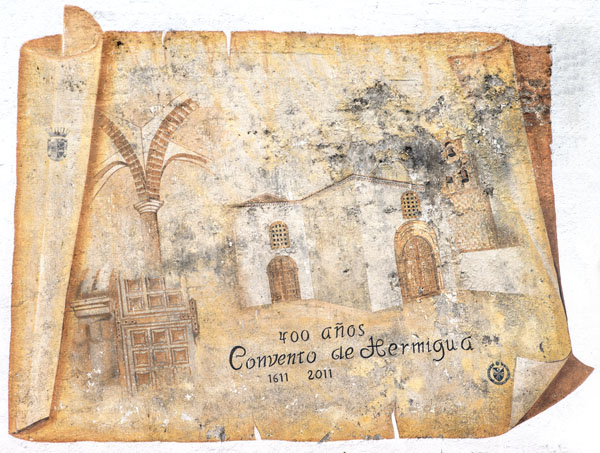 400 años
Convento de Hermigua
1611 2011